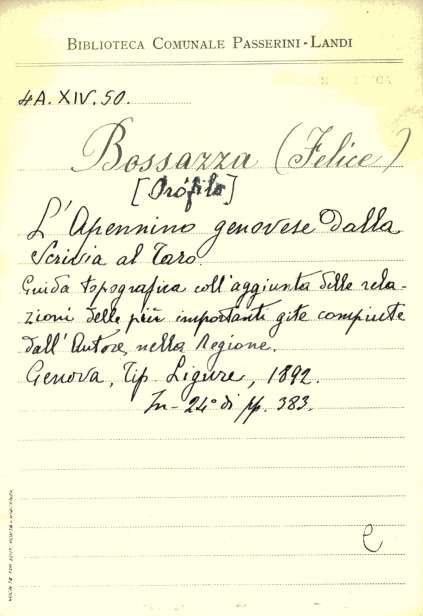 BIBLIOTECA COMUNALE PASSERINI-LANDI
4A. XIV. 50.
Bossazza (Felice)
[Orófilo]
L'Apennino genovese dalla
Scrivia al Taro.
Guida topografica coll'aggiunta delle rela-
zioni delle più importanti gite compiute
dall'Autore, nella Regione.
Genova, Tip. Ligure, 1892.
In-24° di pp. 383.
e